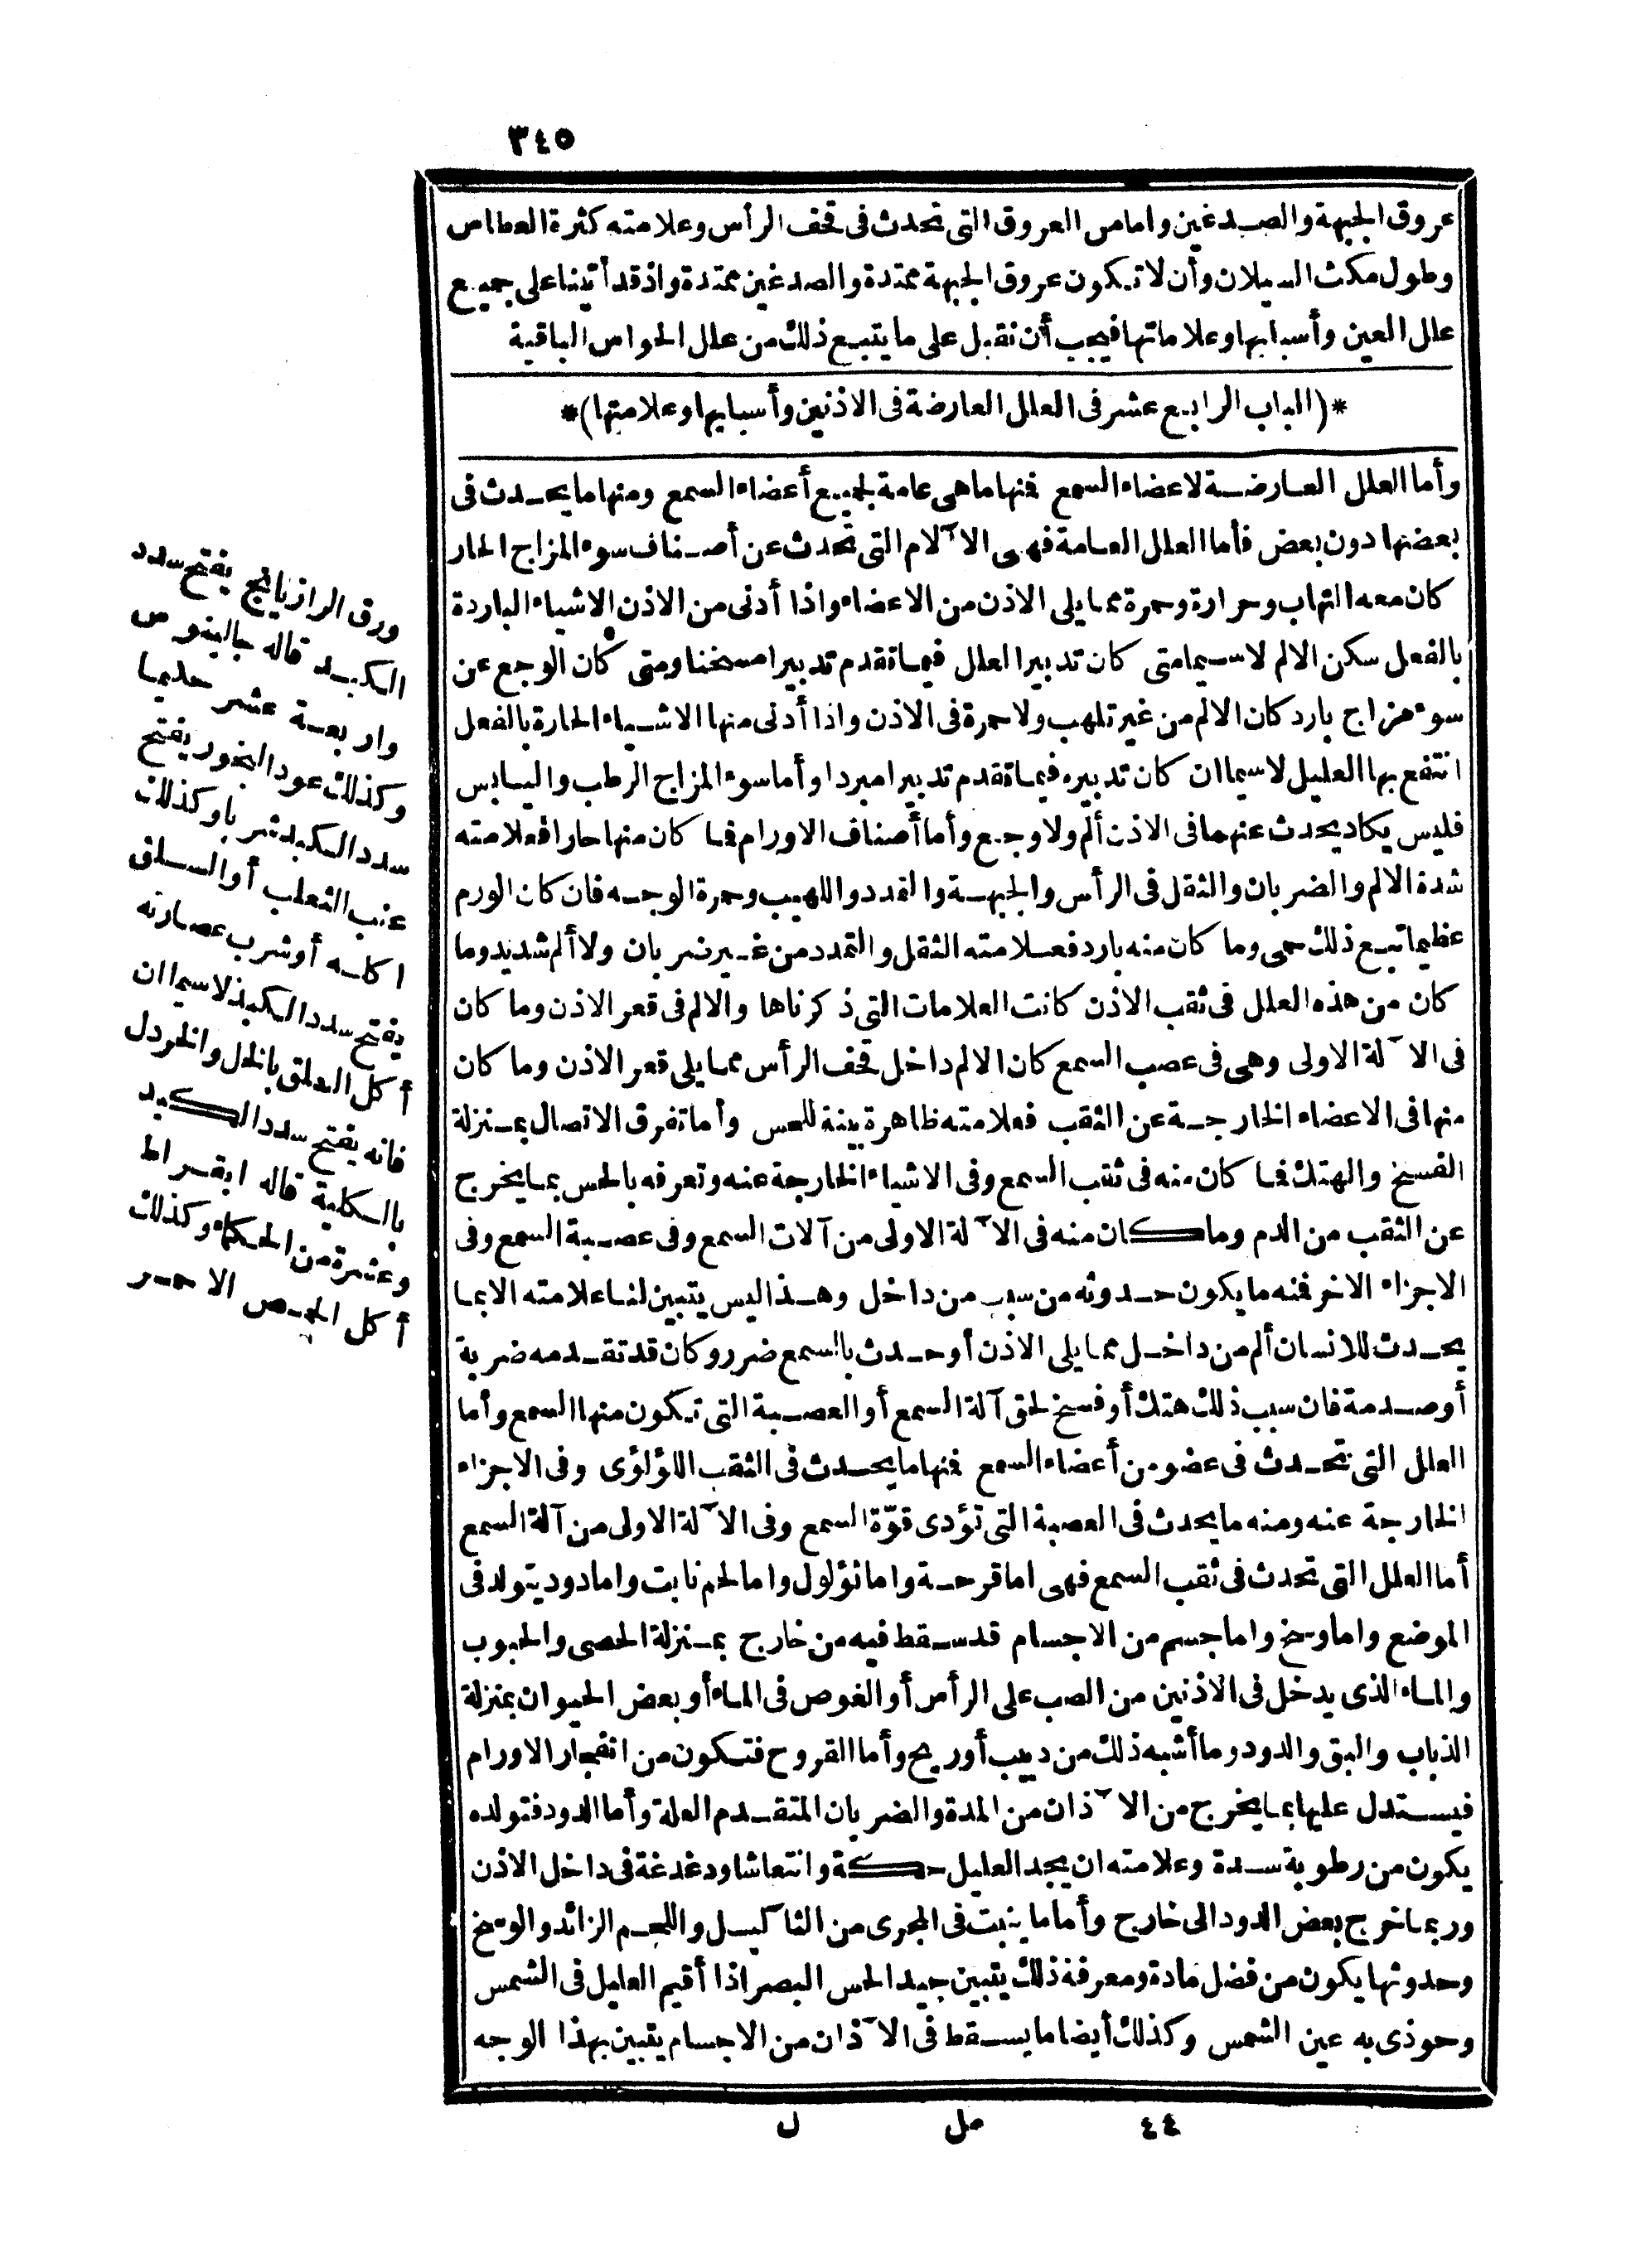 ٣٤٥
عروق الجبهة والصدغين وامامن العروق التى تحدث فى قحف الرأس وعلامته كثرة العطاس
وطول مكث السيلان وأن لا تكون عروق الجبهة ممتدة والصدغين ممتدة واذ قد أتينا على جميع
علل العين وأسبابها وعلاماتها فيجب أن نقبل على ما يتبع ذلك من علل الحواس الباقية
*(الباب الرابع عشر فى العلل العارضة فى الاذنين وأسبابها وعلامتها)*
وأما العلل العارضة لاعضاء السمع فمنها ما هى عامة لجميع أعضاء السمع ومنها ما يحدث فى
بعضها دون بعض فأما العلل العامة فهى الآلام التى تحدث عن أصناف سوء المزاج الحار
كان معه التهاب وحرارة وحمرة مما يلى الاذن من الاعضاء واذا أدنى من الاذن الاشياء الباردة
بالفعل سكن الالم لاسيما متى كان تدبير العلل فيما تقدم تدبيرا مسخنا ومتى كان الوجع عن
سوء مزاج بارد كان الالم من غير تلهب ولا حمرة فى الاذن واذا أدنى منها الاشياء الحارة بالفعل
انتفع بها العليل لاسيما ان كان تدبيره فيما تقدم تدبيرا مبردا وأما سوء المزاج الرطب واليابس
فليس يكاد يحدث عنهما فى الاذن ألم ولا وجع وأما أصناف الاورام فما كان منها حارا فعلامته
شدة الالم والضربان والثقل فى الرأس والجبهة والتمدد واللهيب وحمرة الوجه فان كان الورم
عظيما تبع ذلك حمى وما كان منه بارد فعلامته الثقل والتمدد من غير ضربان ولا ألم شديد وما
كان من هذه العلل فى ثقب الاذن كانت العلامات التى ذكرناها والالم فى قعر الاذن وما كان
فى الآلة الاولى وهى فى عصب السمع كان الالم داخل قحف الرأس مما يلى قعر الاذن وما كان
منها فى الاعضاء الخارجة عن الثقب فعلامته ظاهرة بينة للحس وأما تفرق الاتصال بمنزلة
الفسخ والهتك فما كان منه فى ثقب السمع وفى الاشياء الخارجة عنه وتعرفه بالحس بما يخرج
عن الثقب من الدم وما كان منه فى الآلة الاولى من آلات السمع وفى عصبة السمع وفى
الاجزاء الاخر فمنه ما يكون حدوثه من سبب من داخل وهذا ليس يتبين لنا علامته الا بما
يحدث للانسان ألم من داخل مما يلى الاذن أو حدث بالسمع ضرر وكان قد تقدمه ضربة
أو صدمة فان سبب ذلك هتك أو فسخ لحق آلة السمع أو العصبة التى تكون منها السمع وأما
العلل التى تحدث فى عضو من أعضاء السمع فمنها ما يحدث فى الثقب اللؤلؤى وفى الاجزاء
الخارجة عنه ومنه ما يحدث فى العصبة التى تؤدى قوّة السمع وفى الآلة الاولى من آلة السمع
أما العلل التى تحدث فى ثقب السمع فهى اما قرحة واما ثؤلول واما لحم نابت واما دود يتولد فى
الموضع واما وسخ واما جسم من الاجسام قد سقط فيه من خارج بمنزلة الحصى والحبوب
والماء الذى يدخل فى الاذنين من الصب على الرأس أو الغوص فى الماء أو بعض الحيوان بمنزلة
الذباب والبق والدود وما أشبه ذلك من دبيب أو ريح وأما القروح فتكون من انفجار الاورام
فيستدل عليها بما يخرج من الآذان من المدة والضربان المتقدم العلة وأما الدود فتولده
يكون من رطوبة سدة وعلامته ان يجد العليل حكة وانتعاشا ودغدغة فى داخل الاذن
وربما خرج بعض الدود الى خارج وأما ما ينبت فى المجرى من الثاكيل واللحم الزائد والوسخ
وحدوثها يكون من فضل مادة ومعرفة ذلك يتبين جيد الحس البصر اذا أقيم العليل فى الشمس
وحوذى به عين الشمس وكذلك أيضا ما يسقط فى الآذان من الاجسام يتبين بهذا الوجه
ورق الرازيانج يفتح سدد
الكبد قاله جالينوس
واربعة عشر حكيما
وكذلك عود البخور يفتح
سدد الكبد شربا وكذلك
عنب الثعلب أو السلق
اكله أو شرب عصارته
يفتح سدد الكبد لاسيما ان
أكل السلق بالخل والخردل
فانه يفتح سدد الكبد
بالكلية قاله ابقراط
وعشرة من الحكماء وكذلك
أكل الحمص الاحمر
٤٤ مل ل